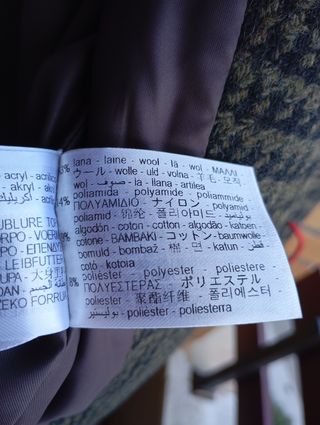 acryl - acrílico
% lana - laine - wool - lã - wol - ΜΑΛΛΙ
ウール - wolle - uld - volna - 羊毛 - 모직
wol - صوف - la - llana - artilea
4% poliamida - polyamide - poliammide
ΠΟΛΥΑΜΙΔΙΟ - ナイロン - polyamid -
poliamid - 锦纶 - 폴리아미드 - بولياميد
% algodón - coton - cotton - algodão - katoen -
cotone - BAMBAKI - コットン - baumwolle -
bomuld - bombaž - 棉 - 면 - katun - قطن -
cotó - kotoia
% poliéster - polyester - poliestere -
ΠΟΛΥΕΣΤΕΡΑΣ - ポリエステル -
poliester - 聚酯纤维 - 폴리에스터 -
بوليستير - polièster - poliesterra
UBLURE
ORPO - VOERI
ΡΟ - ΕΠΕΝΔ
LEIBFUTTER
UPA - 大身里
ZEKO FORRU